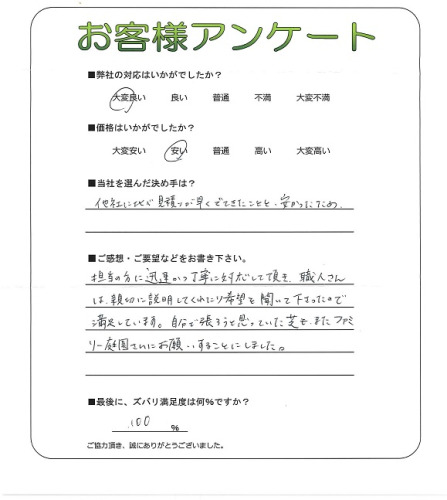 お客様アンケート
■弊社の対応はいかがでしたか?
大変良い 良い 普通 不満 大変不満
■価格はいかがでしたか?
大変安い 安い 普通 高い 大変高い
■当社を選んだ決め手は?
他社に比べ見積りが早くできたことと、安かったため。
■ご感想・ご要望などをお書き下さい。
担当の方に迅速かつ丁寧に対応して頂き、職人さん
は、親切に説明してくれたり希望を聞いて下さったので
満足しています。自分で張ろうと思っていた芝も、またファミ
リー庭園さんにお願いすることにしました。
■最後に、ズバリ満足度は何%ですか?
100 %
ご協力頂き、誠にありがとうございました。